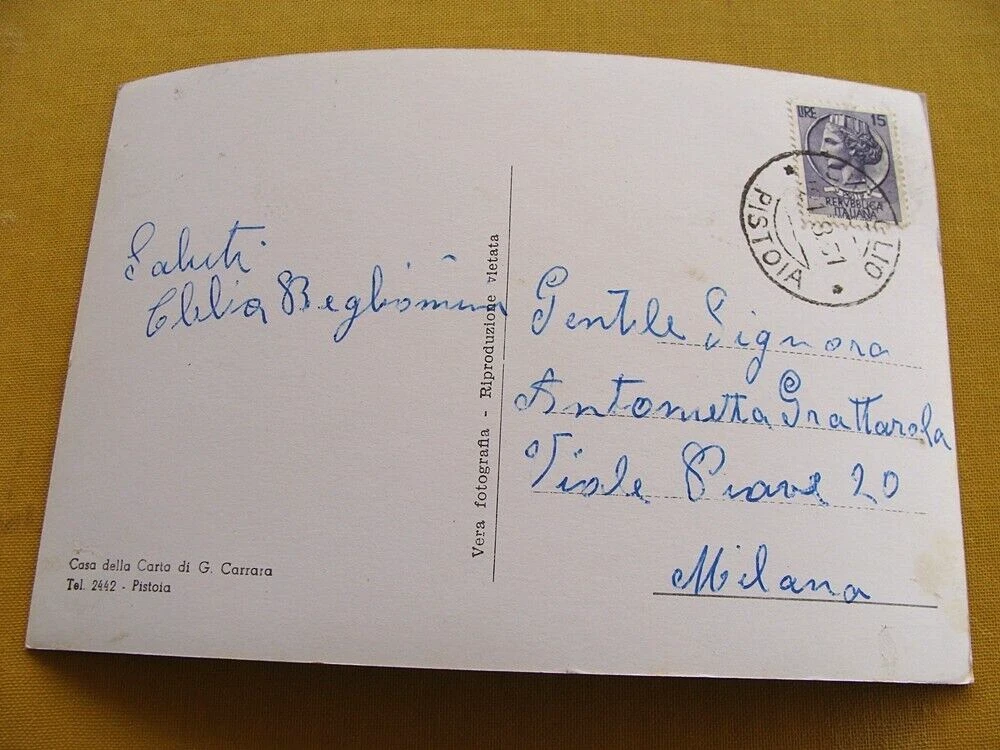 Saluti
Clelia Begliomini
Casa della Carta di G. Carrara
Tel. 2442 - Pistoia
Vera fotografia - Riproduzione vietata
LIRE 15
REPVBBLICA
ITALIANA
PISTOIA
Gentile Signora
Antonietta Grattarola
Viale Piave 20
Milano